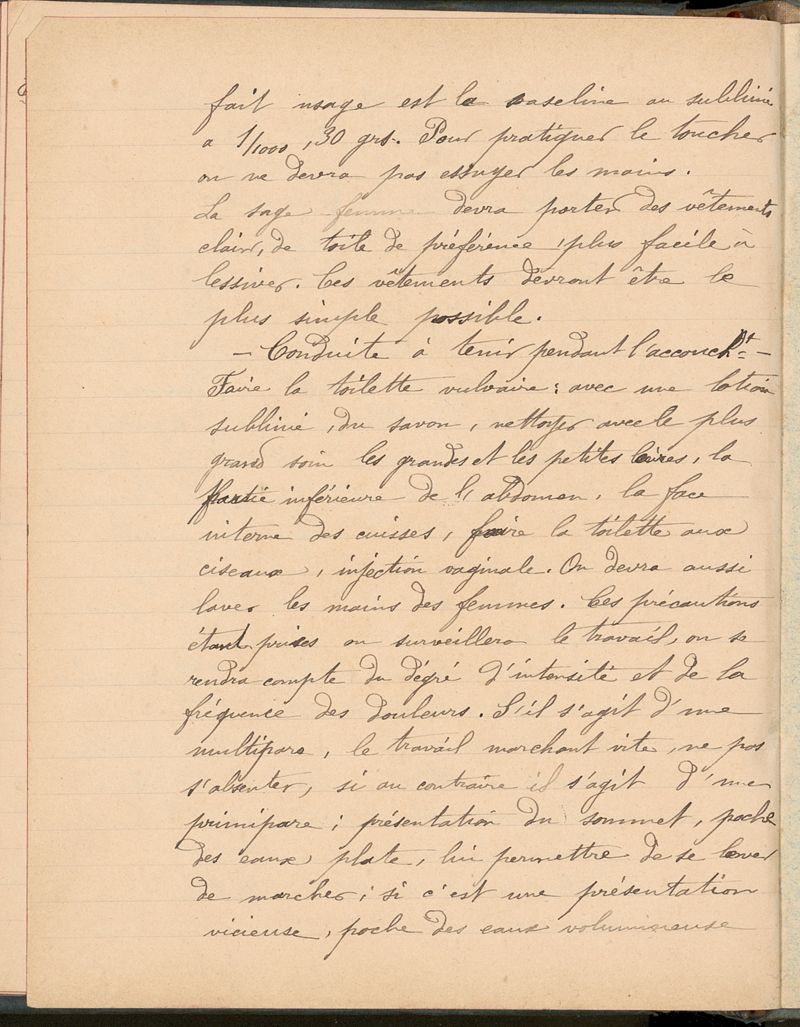 fait usage est la vaseline au sublimé
a 1/1000, 30 grs. Pour pratiquer le toucher
on ne devra pas essuyer les mains.
La sage femme devra porter des vêtements
clair, de toile de préférence, plus facile à
lessiver. Ces vêtements devront être le
plus simple possible.
- Conduite à tenir pendant l'accouch.nt -
Faire la toilette vulvaire: avec une lotion
sublimé, du savon, nettoyer avec le plus
grand soin les grandes et les petites lèvres, la
partie inférieure de l'abdomen, la face
interne des cuisses, faire la toilette aux
ciseaux, injection vaginale. On devra aussi
laver les mains des femmes. Ces précautions
étant prises on surveillera le travail, on se
rendra compte du dégré d'intensité et de la
fréquence des douleurs. S'il s'agit d'une
multipare, le travail marchant vite, ne pas
s'absenter, si au contraire il s'agit d'une
primipare; présentation du sommet, poche
des eaux plate, lui permettre de se lever
de marcher; si c'est une présentation
vicieuse, poche des eaux volumineuse